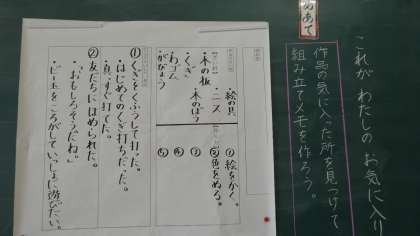 これが わたしの お気に入り
めあて
作品の気に入った所を見つけて
組み立てメモを作ろう。
①絵をかく。
②色をぬる。
③
④
⑤
・絵の具
・ニス
・木の板
・木のぼう
・くぎ
・わゴム
・がびょう
①くぎをくふうして打った。
・はじめてのくぎ打ちだった。
・真っすぐ打てた。
②友だちにほめられた。
・「おもしろそうだね。」
・ビー玉をころがしていっしょに遊びたい。